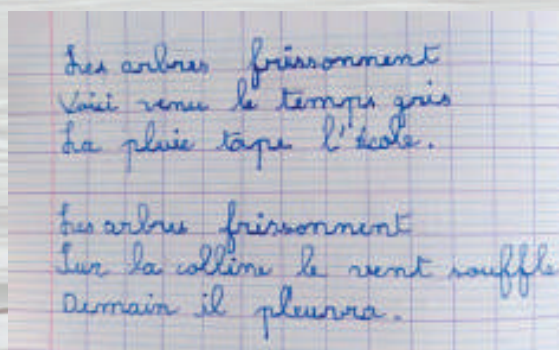 Les arbres frissonnent
Voici venu le temps gris
La pluie tape l'école.
Les arbres frissonnent
Sur la colline le vent souffle
Demain il pleuvra.